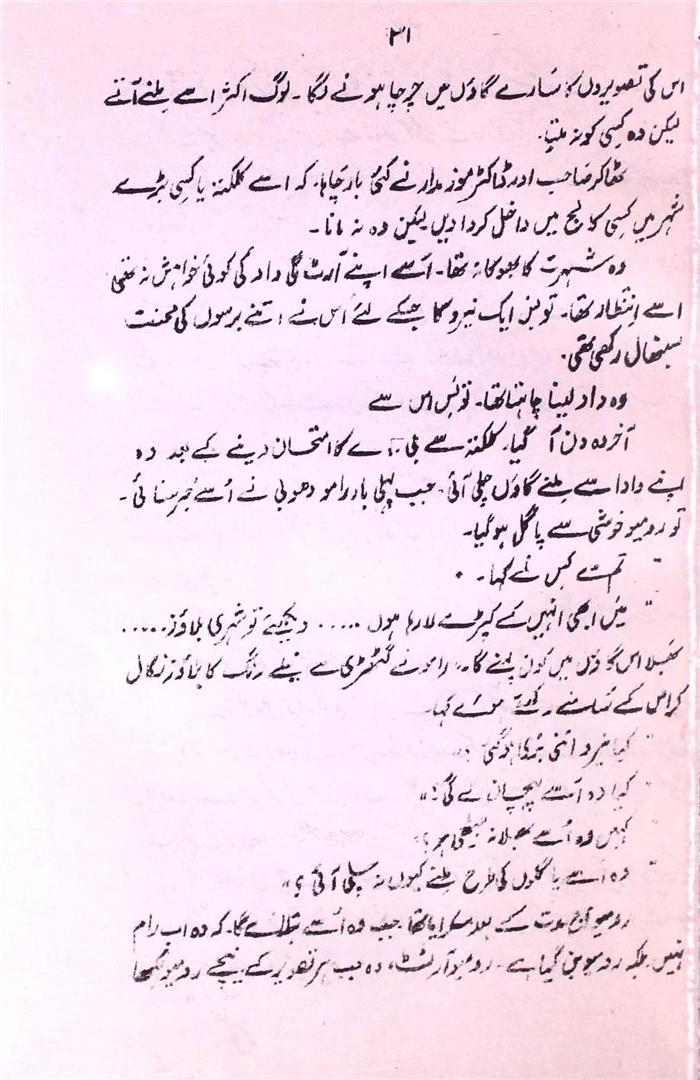 ۳۱
اس کی تصویروں کا سارے گاؤں میں چرچا ہونے لگا ۔ لوگ اکثر اسے ملنے آتے
لیکن وہ کسی کو نہ ملتا۔
ٹھاکر صاحب اور ڈاکٹر موزمدار نے کئی بار چاہا۔ کہ اسے کلکتہ یا کسی بڑے
شہر میں کسی کالج میں داخل کروا دیں لیکن وہ نہ مانا ۔
وہ شہرت کا بھوکا نہ تھا۔ اسے اپنے آرٹ کی داد کی کوئی خواہش نہ تھی
اسے انتظار تھا۔ تو بس ایک نیرو کا جسکے لئے اُس نے اتنے برسوں کی محنت
سنبھال رکھی تھی۔
وہ داد لینا چاہتا تھا۔ تو بس اس سے
آخر وہ دن آ گیا۔ کلکتہ سے بی ۔ اے کا امتحان دینے کے بعد وہ
اپنے دادا سے ملنے گاؤں چلی آئی۔ جب پہلی بار رامو دھوبی نے اُسے خبر سنائی۔
تو رومیو خوشی سے پاگل ہو گیا۔
" تم سے کس نے کہا۔ "
" میں ابھی انہیں کے کپڑے لا رہا ہوں ..... دیکھئے تو شہری بلاؤز .....
بھلا اس گاؤں میں کون پہنے گا۔" رامو نے گٹھڑی سے نیلے رنگ کا بلاؤز نکال
کر اس کے سامنے رکھتے ہوئے کہا۔
" کیا نیرو اتنی بڑی ہو گئی ؟"
" کیا وہ اُسے پہچان لے گی؟"
" کہیں وہ اُسے بھلا نہ بیٹھی ہو؟"
" وہ اسے پاگلوں کی طرح ملنے کیوں نہ چلی آئی ؟"
رومیو آج مدت کے بعد مسکرایا تھا جب وہ اُسے بتلائے گا۔ کہ وہ اب رام
نہیں بلکہ رومیو بن گیا ہے۔ رومیو آرٹسٹ، وہ جب ہر تصویر کے نیچے رومیو لکھا